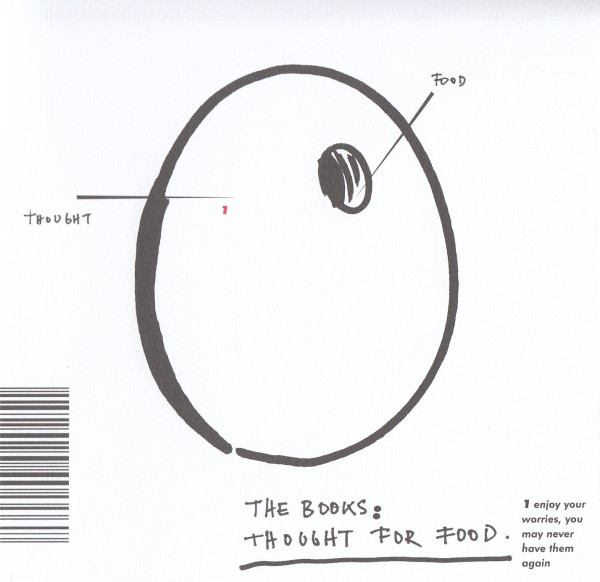 FOOD
THOUGHT
1
THE BOOKS:
THOUGHT FOR FOOD.
1 enjoy your
worries, you
may never
have them
again